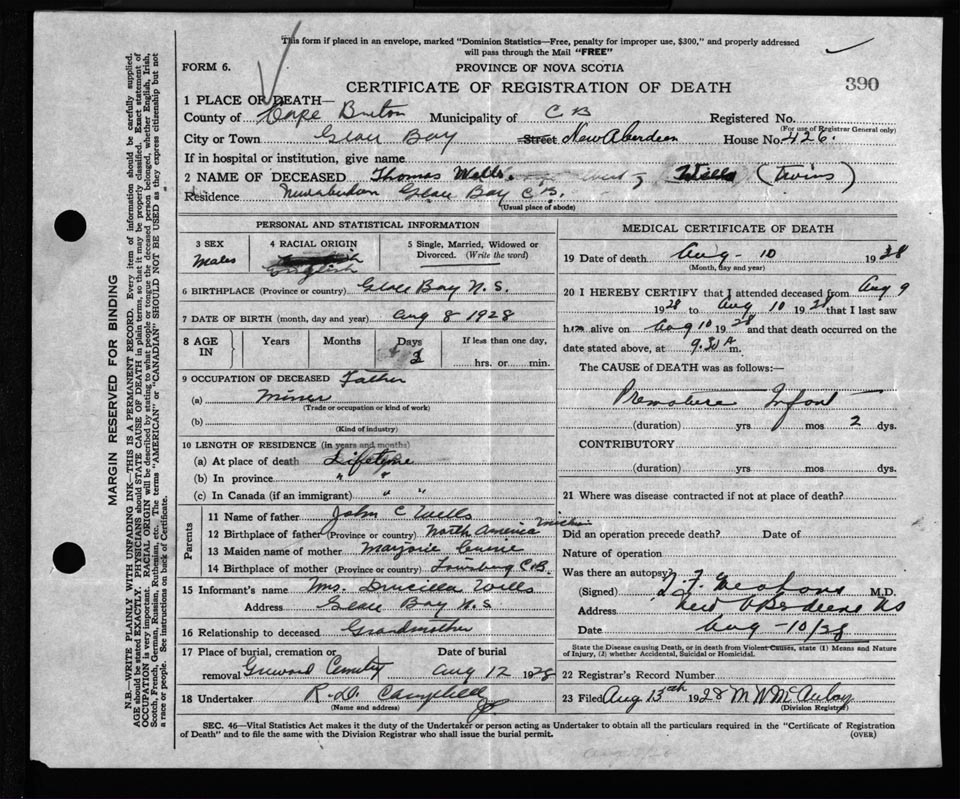 This form if placed in an envelope, marked "Dominion Statistics—Free, penalty for improper use, $300," and properly addressed
will pass through the Mail "FREE"
FORM 6.
PROVINCE OF NOVA SCOTIA
CERTIFICATE OF REGISTRATION OF DEATH
390
1 PLACE OF DEATH—
County of Cape Breton Municipality of C B Registered No.
(For use of Registrar General only)
City or Town Glace Bay Street New Aberdeen House No. 426.
If in hospital or institution, give name
2 NAME OF DECEASED Thomas Wells. Wells (Twins)
Residence Newaberdeen Glace Bay C B.
(Usual place of abode)
PERSONAL AND STATISTICAL INFORMATION
3 SEX
Males
4 RACIAL ORIGIN
English
5 Single, Married, Widowed or
Divorced. (Write the word)
6 BIRTHPLACE (Province or country) Glace Bay N. S.
7 DATE OF BIRTH (month, day and year) Aug 8 1928
8 AGE
IN
Years Months Days
If less than one day,
hrs. or min.
9 OCCUPATION OF DECEASED Father
(a) Miner
(Trade or occupation or kind of work)
(b)
(Kind of industry)
10 LENGTH OF RESIDENCE (in years and months)
(a) At place of death Lifetime
(b) In province " "
(c) In Canada (if an immigrant) " "
Parents
11 Name of father John C Wells
12 Birthplace of father (Province or country) North America
13 Maiden name of mother Marjorie
14 Birthplace of mother (Province or country) Louisburg C.B.
15 Informant's name Mrs. Drucilla Wells
Address Glace Bay N. S
16 Relationship to deceased Grandmother
17 Place of burial, cremation or Date of burial
removal Greenwood Cemetery Aug 12 1928
18 Undertaker R. D. Campbell
(Name and address)
MEDICAL CERTIFICATE OF DEATH
19 Date of death Aug - 10 1928
(Month, day and year)
20 I HEREBY CERTIFY that I attended deceased from Aug 9
1928 to Aug 10 1928 that I last saw
him alive on Aug 10 1928 and that death occurred on the
date stated above, at 9.30 A m.
The CAUSE of DEATH was as follows:—
Premature Infant
(duration) yrs mos 2 dys.
CONTRIBUTORY
(duration) yrs. mos. dys.
21 Where was disease contracted if not at place of death?
Did an operation precede death? Date of
Nature of operation
Was there an autopsy?
(Signed) M.D.
Address New Aberdeen NS
Date Aug - 10/28
State the Disease causing Death, or in death from Violent Causes, state (1) Means and Nature
of Injury, (2) whether Accidental, Suicidal or Homicidal.
22 Registrar's Record Number
23 Filed Aug 13th 1928 M W McAulay
(Division Registrar)
SEC. 46—Vital Statistics Act makes it the duty of the Undertaker or person acting as Undertaker to obtain all the particulars required in the "Certificate of Registration
of Death" and to file the same with the Division Registrar who shall issue the burial permit.
(OVER)
MARGIN RESERVED FOR BINDING
N.B.—WRITE PLAINLY WITH UNFADING INK—THIS IS A PERMANENT RECORD. Every item of information should be carefully supplied.
AGE should be stated EXACTLY. PHYSICIANS should STATE CAUSE OF DEATH in plain terms, so that it may be properly classified. Exact statement of
OCCUPATION is very important. RACIAL ORIGIN will be described by stating to what people or tongue the deceased person belonged, whether English, Irish,
Scotch, French, German, Russian, Ruthenian, etc. The terms "AMERICAN" or "CANADIAN" SHOULD NOT BE USED as they express citizenship but not
a race or people. See instructions on back of Certificate.